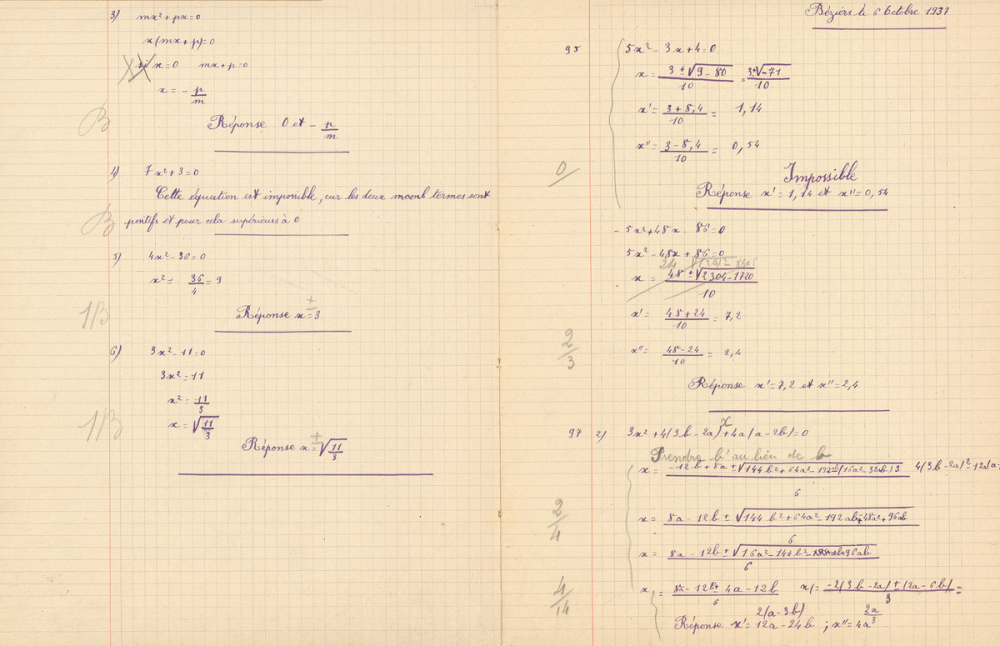 3) mx² + px = 0
x(mx + p) = 0
x = 0 mx + p = 0
x = - p/m
B
Réponse 0 et - p/m
4) 7x² + 3 = 0
Cette équation est impossible, car les deux termes sont
B
positifs et pour cela supérieurs à 0
5) 4x² - 36 = 0
x² = 36/4 = 9
1/3 Réponse x = ± 3
6) 3x² - 11 = 0
3x² = 11
x² = 11/3
x = √11/3
1/3
Réponse x = ± √11/3
Béziers le 6 Octobre 1937
95 5x² - 3x + 4 = 0
x = 3 ± √9 - 80 / 10 = 3 ± √-71 / 10
x' = 3 + 8,4 / 10 = 1,14
x'' = 3 - 8,4 / 10 = 0,54
0 Impossible
Réponse x' = 1,14 et x'' = 0,54
- 5x² + 48x - 86 = 0
5x² - 48x + 86 = 0
24
x = 48 ± √2304 - 1720 / 10
x' = 48 + 24 / 10 = 7,2
2/3 x'' = 48 - 24 / 10 = 2,4
Réponse x' = 7,2 et x'' = 2,4
97 2) 3x² + 4(3b - 2a)x + 4a(a - 2b) = 0
Prendre b' au lieu de b
x = -12b + 8a ± √144b² + 64a² - 192ab - (16a² - 32ab)3 / 6 4(3b - 2a)² - 12a(a -
2/4 x = 8a - 12b ± √144b² + 64a² - 192ab - 48a² + 96ab / 6
x = 8a - 12b ± √16a² - 144b² - 96ab / 6
4/14 x = 8a - 12b ± 4a - 12b / 6 x = -2(3b - 2a) ± (2a - 6b) / 3 =
2(a - 3b) 2a/3
Réponse x' = 12a - 24b ; x'' = 4a